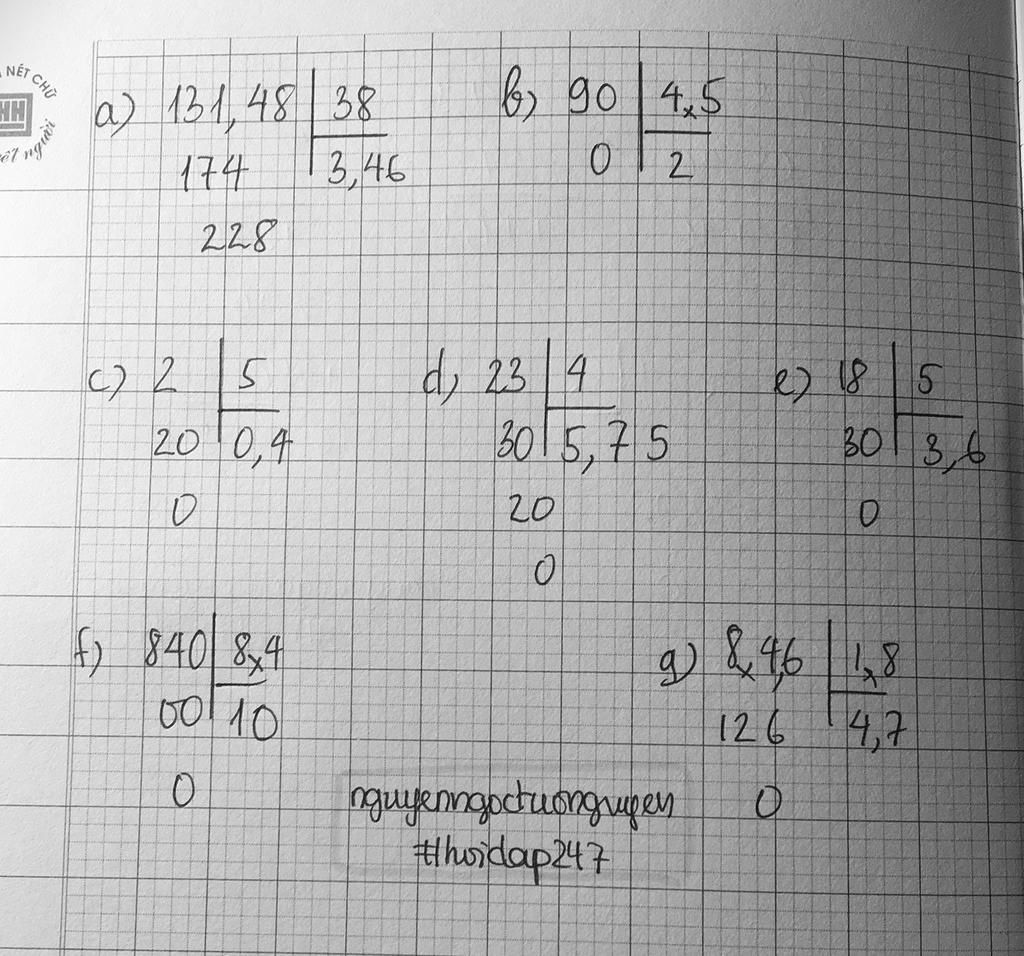 NÉT CHỮ
HH
nết người
a) 131,48 | 38
174 | 3,46
228
b) 90 | 4,5
0 | 2
c) 2 | 5
20 | 0,4
0
d) 23 | 4
30 | 5,75
20
0
e) 18 | 5
30 | 3,6
0
f) 840 | 8,4
00 | 10
0
g) 8,4,6 | 1,8
126 | 4,7
0
#hoidap247